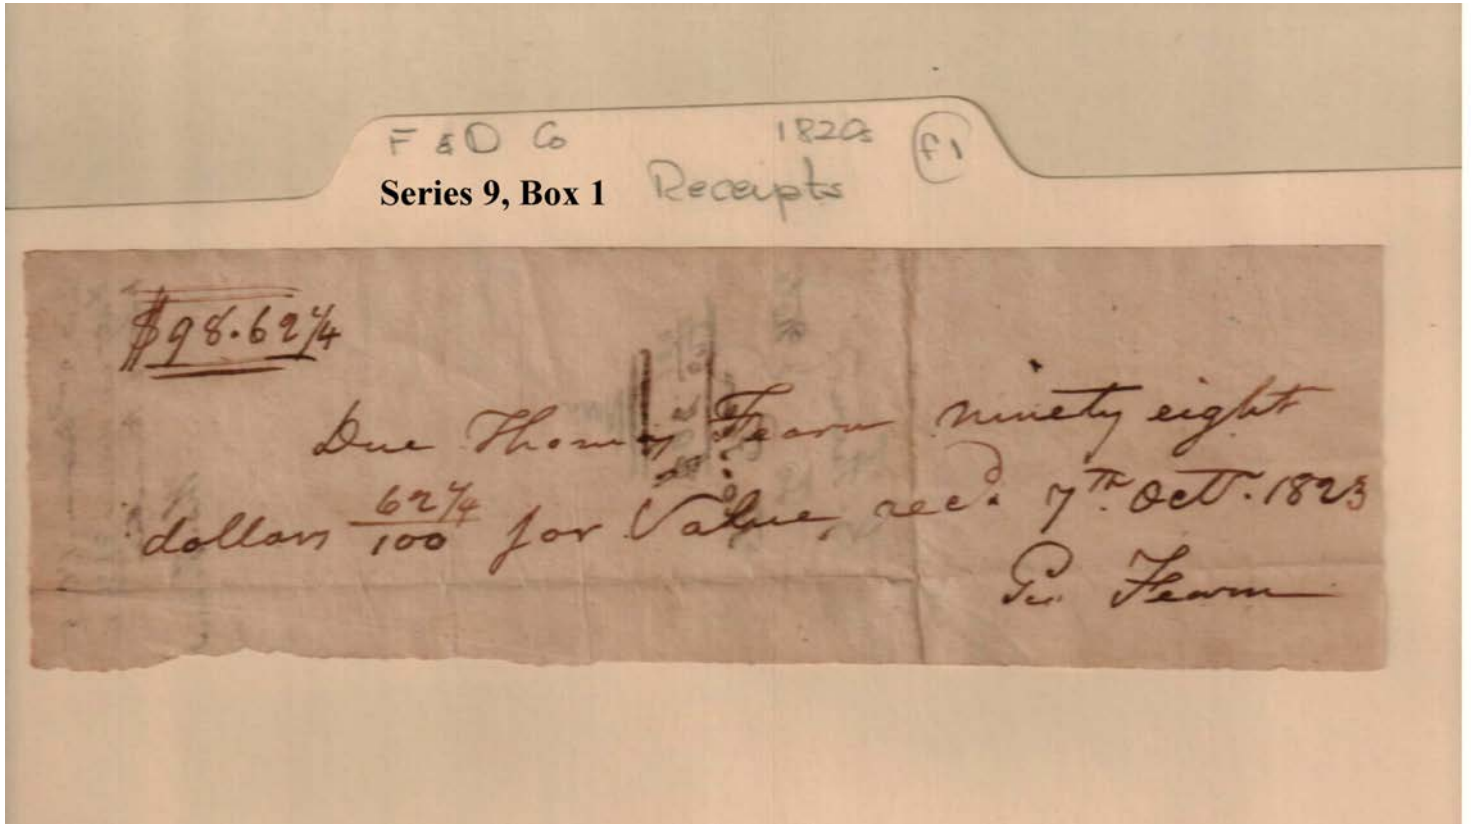 F & D Co 1820s f1
Series 9, Box 1 Receipts
$98.62 1/4
Due Thomas Fearn ninety eight
dollars 62 1/4 / 100 for Value, recd. 7th. Octr. 1823
Geo. Fearn